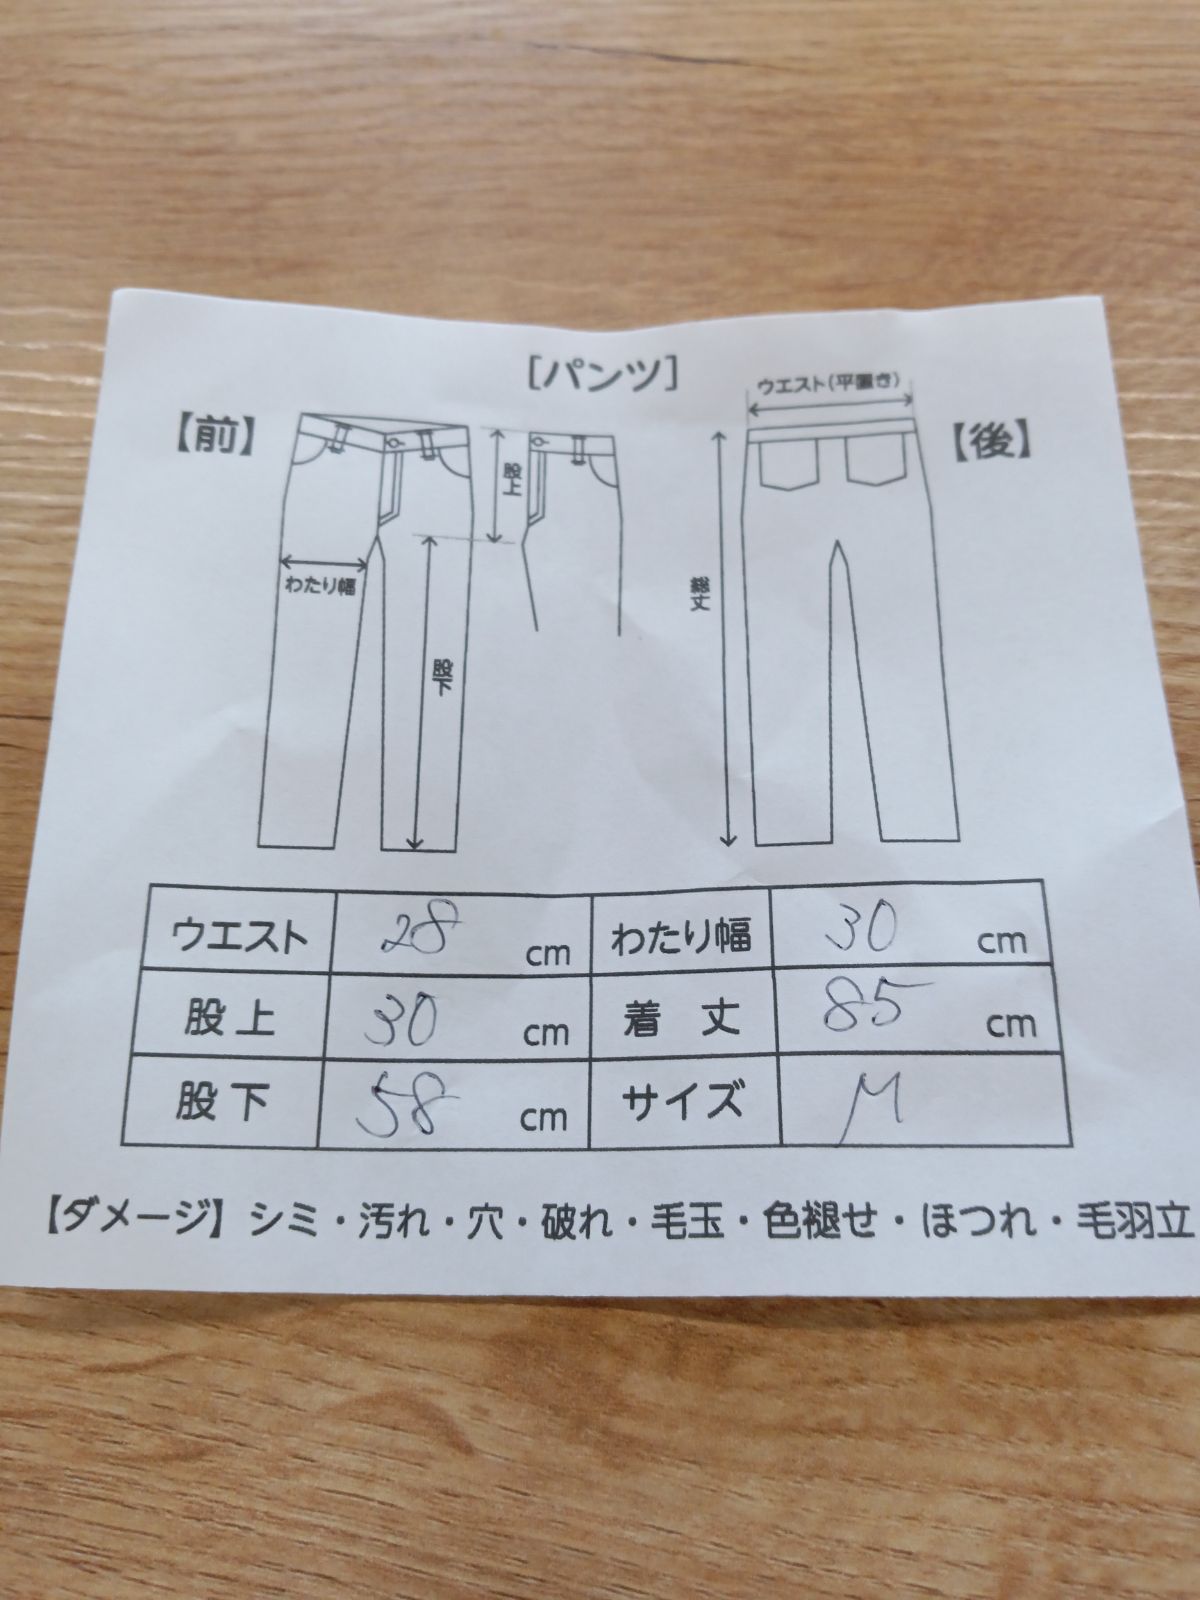 [パンツ]
ウエスト(平置き)
【前】
【後】
股上
わたり幅
総丈
股下
ウエスト 28 cm わたり幅 30 cm
股上 30 cm 着丈 85 cm
股下 58 cm サイズ M
【ダメージ】シミ・汚れ・穴・破れ・毛玉・色褪せ・ほつれ・毛羽立